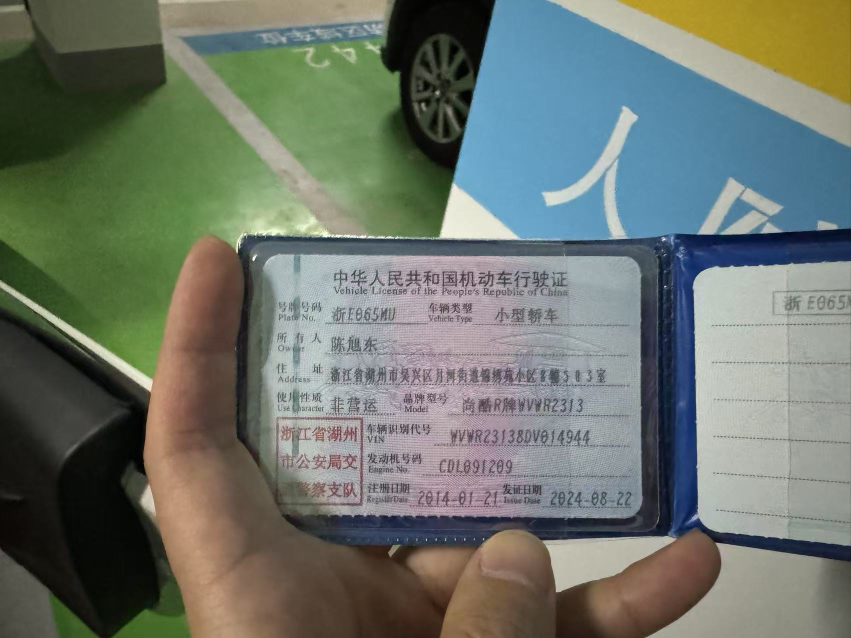 中华人民共和国机动车行驶证
Vehicle License of the People's Republic of China
号牌号码 浙E065MU 车辆类型 小型轿车
Plate No. Vehicle Type
所有人 陈旭东
Owner
住址 浙江省湖州市吴兴区月河街道锦绣苑小区8幢503室
Address
使用性质 非营运 品牌型号 尚酷R牌WVWR2313
Use Character Model
浙江省湖州
市公安局交
警察支队
车辆识别代号 WVWR23138DV014944
VIN
发动机号码 CDL091209
Engine No.
注册日期 2014-01-21 发证日期 2024-08-22
Register Date Issue Date
浙E065M
442
区域车位
人